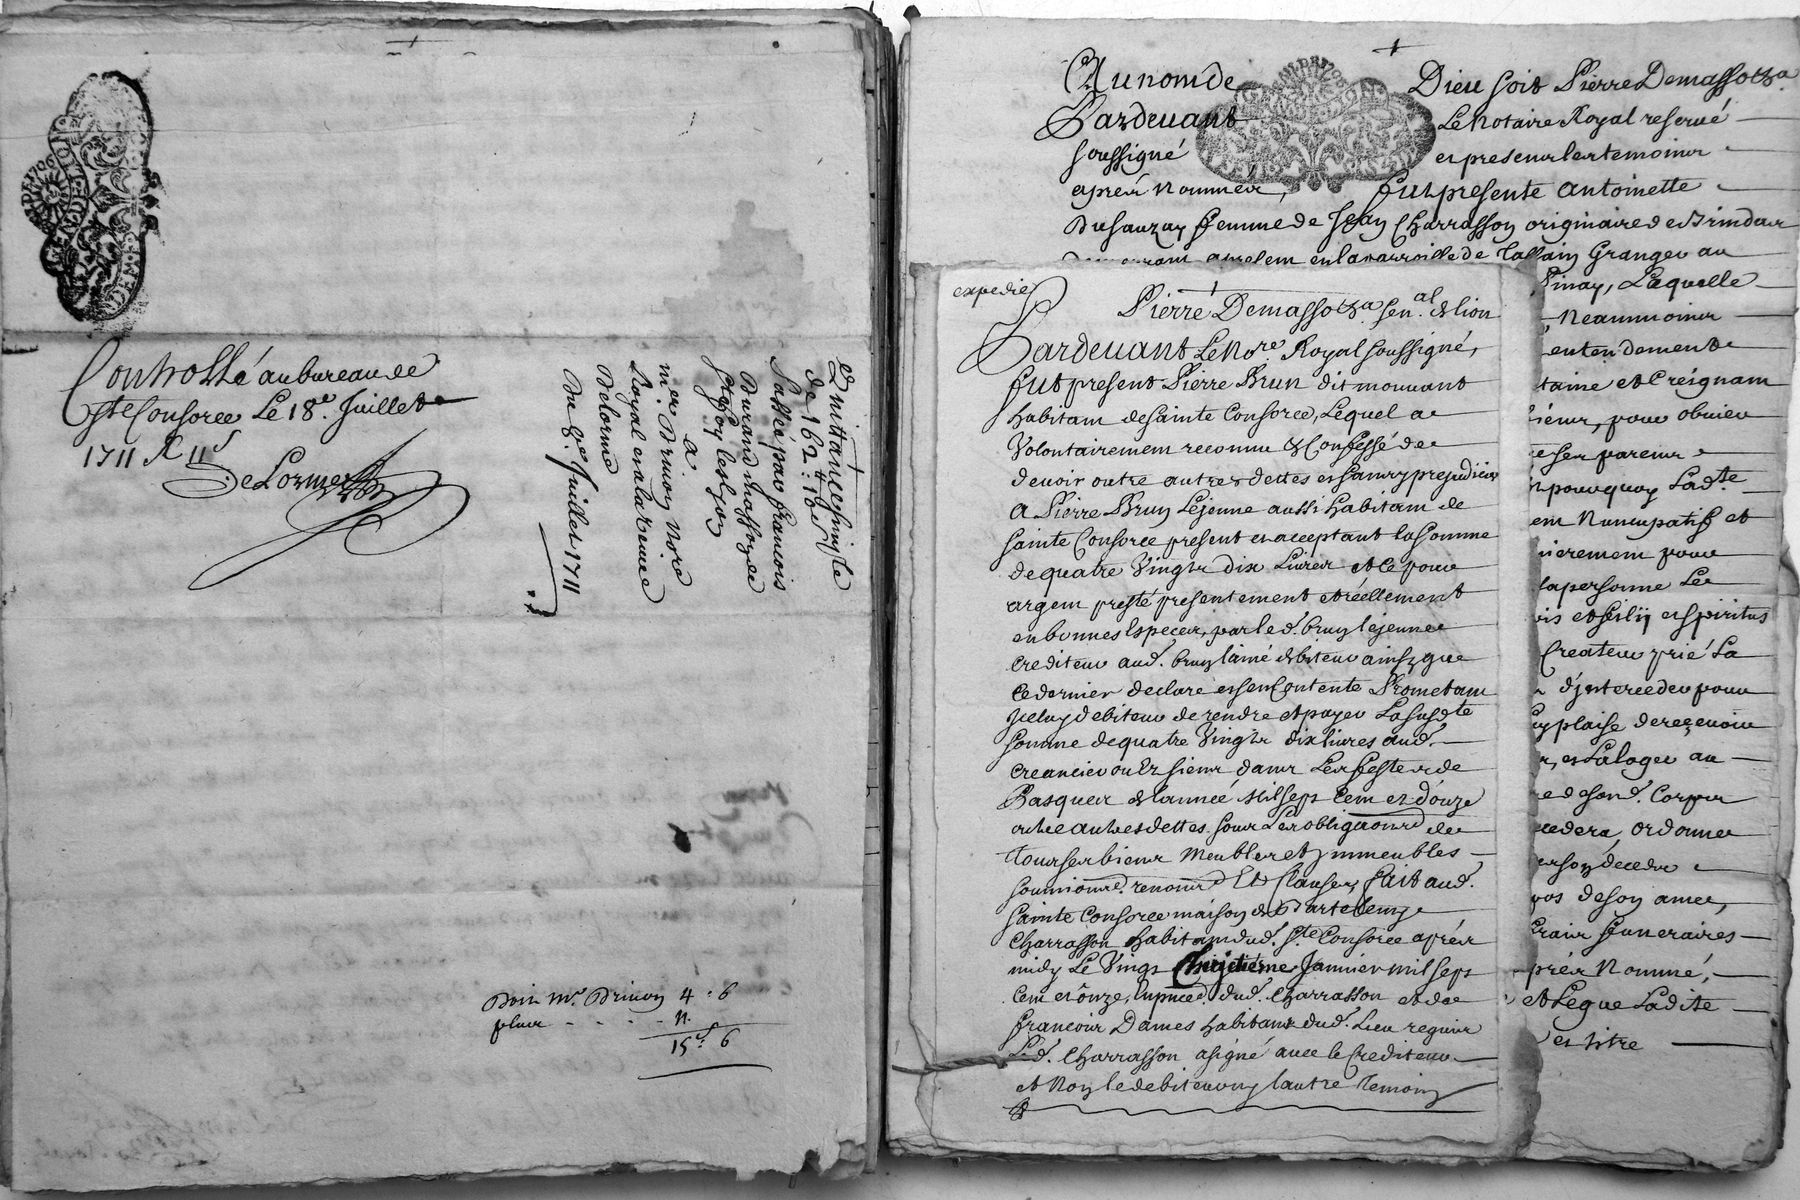 Controllé au bureau de
Ste Consorce Le 18e. Juillet
1711 R 11s
DeLorme
Quittance simple
de 162:
Passée par francois
Durand
Ste foy les lyon
a
mr. Brivon Nore
Royal
Delorme
Du 8e. Juillet 1711
Doit Mr. Brivon 4 : 6
plus - - - - 11.
15s : 6
Au nom de Dieu soit Pierre Demasso
Pardevant Le Notaire Royal reservé
soussigné et presens les temoins
après Nommés, fut presente Antoinette
Dusauzay femme de Jean Charrasson originaire de Brindas
Granger au
Pinay, Laquelle
Neammoins
entendement
taine et Creignam
pour obvier
ses parens
pourquoy Ladte
Nuncupatif et
ierement pour
la personne Les
is et filij et spiritus
Createur prié La
d'jnterceder pour
plaise de reçevoir
et La loger au
de sond. Corps
cedera ordonner
son décedz
pos de son ame,
frais funeraires
près Nommé,
et Legue Ladite
et titre
expedié
Pierre Demasso sen.al de lion
Pardevant Le Nore. Royal soussigné,
fut present Pierre Brun dit mouvant
habitam de Sainte Consorce, Lequel a
Volontairement reconnu & Confessé de
devoir outre autres dettes et sans prejudice
A Pierre Brun Lejeune aussi habitam de
Sainte Consorce present et acceptant la somme
de quatre Vingts dix Livres et ce pour
argem presté presentement et réellement
en bonnes Especes, par led. brun lejeune
Crediteur aud. brun lainé debiteur ainsy que
Ce dernier declare et sen Contente Prometam
jceluy debiteur de rendre et payer La susdte
somme de quatre Vingts dix livres aud.
Creancier ou Es siens dans Les festes de
Pasques de lannée Mil sept Cem et douze
outre autres dettes. sous Les obligaons de
tous ses biens Meubles et jmmeubles
soumions. renons. Et Clauses, fait aud.
Sainte Consorce maison de Bartelemy
Charrasson habitam dud. Ste Consorce après
midy Le Vingt Janvier mil sept
Cem et ônze, en pnce. dud. Charrasson et de
francois Dames habitans dud. Lieu requis
Led. Charrasson a signé avec le Crediteur
et Non le debiteur ny lautre temoin